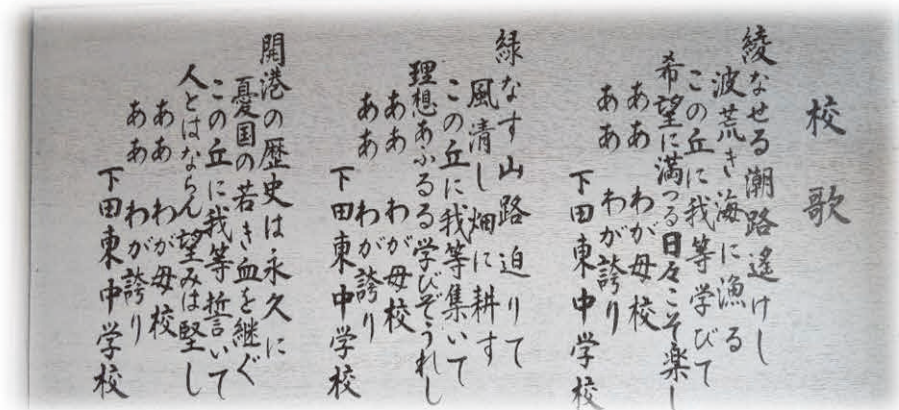 校歌
綾なせる潮路遙けし
波荒き海に漁る
この丘に我等学びて
希望に満つる日々こそ楽し
ああ わが母校
ああ わが誇り
下田東中学校
緑なす山路迫りて
風清し畑に耕す
この丘に我等集いて
理想あふるる学びぞうれし
ああ わが母校
ああ わが誇り
下田東中学校
開港の歴史は永久に
憂国の若き血を継ぐ
この丘に我等誓いて
人とはならん望みは堅し
ああ わが母校
ああ わが誇り
下田東中学校